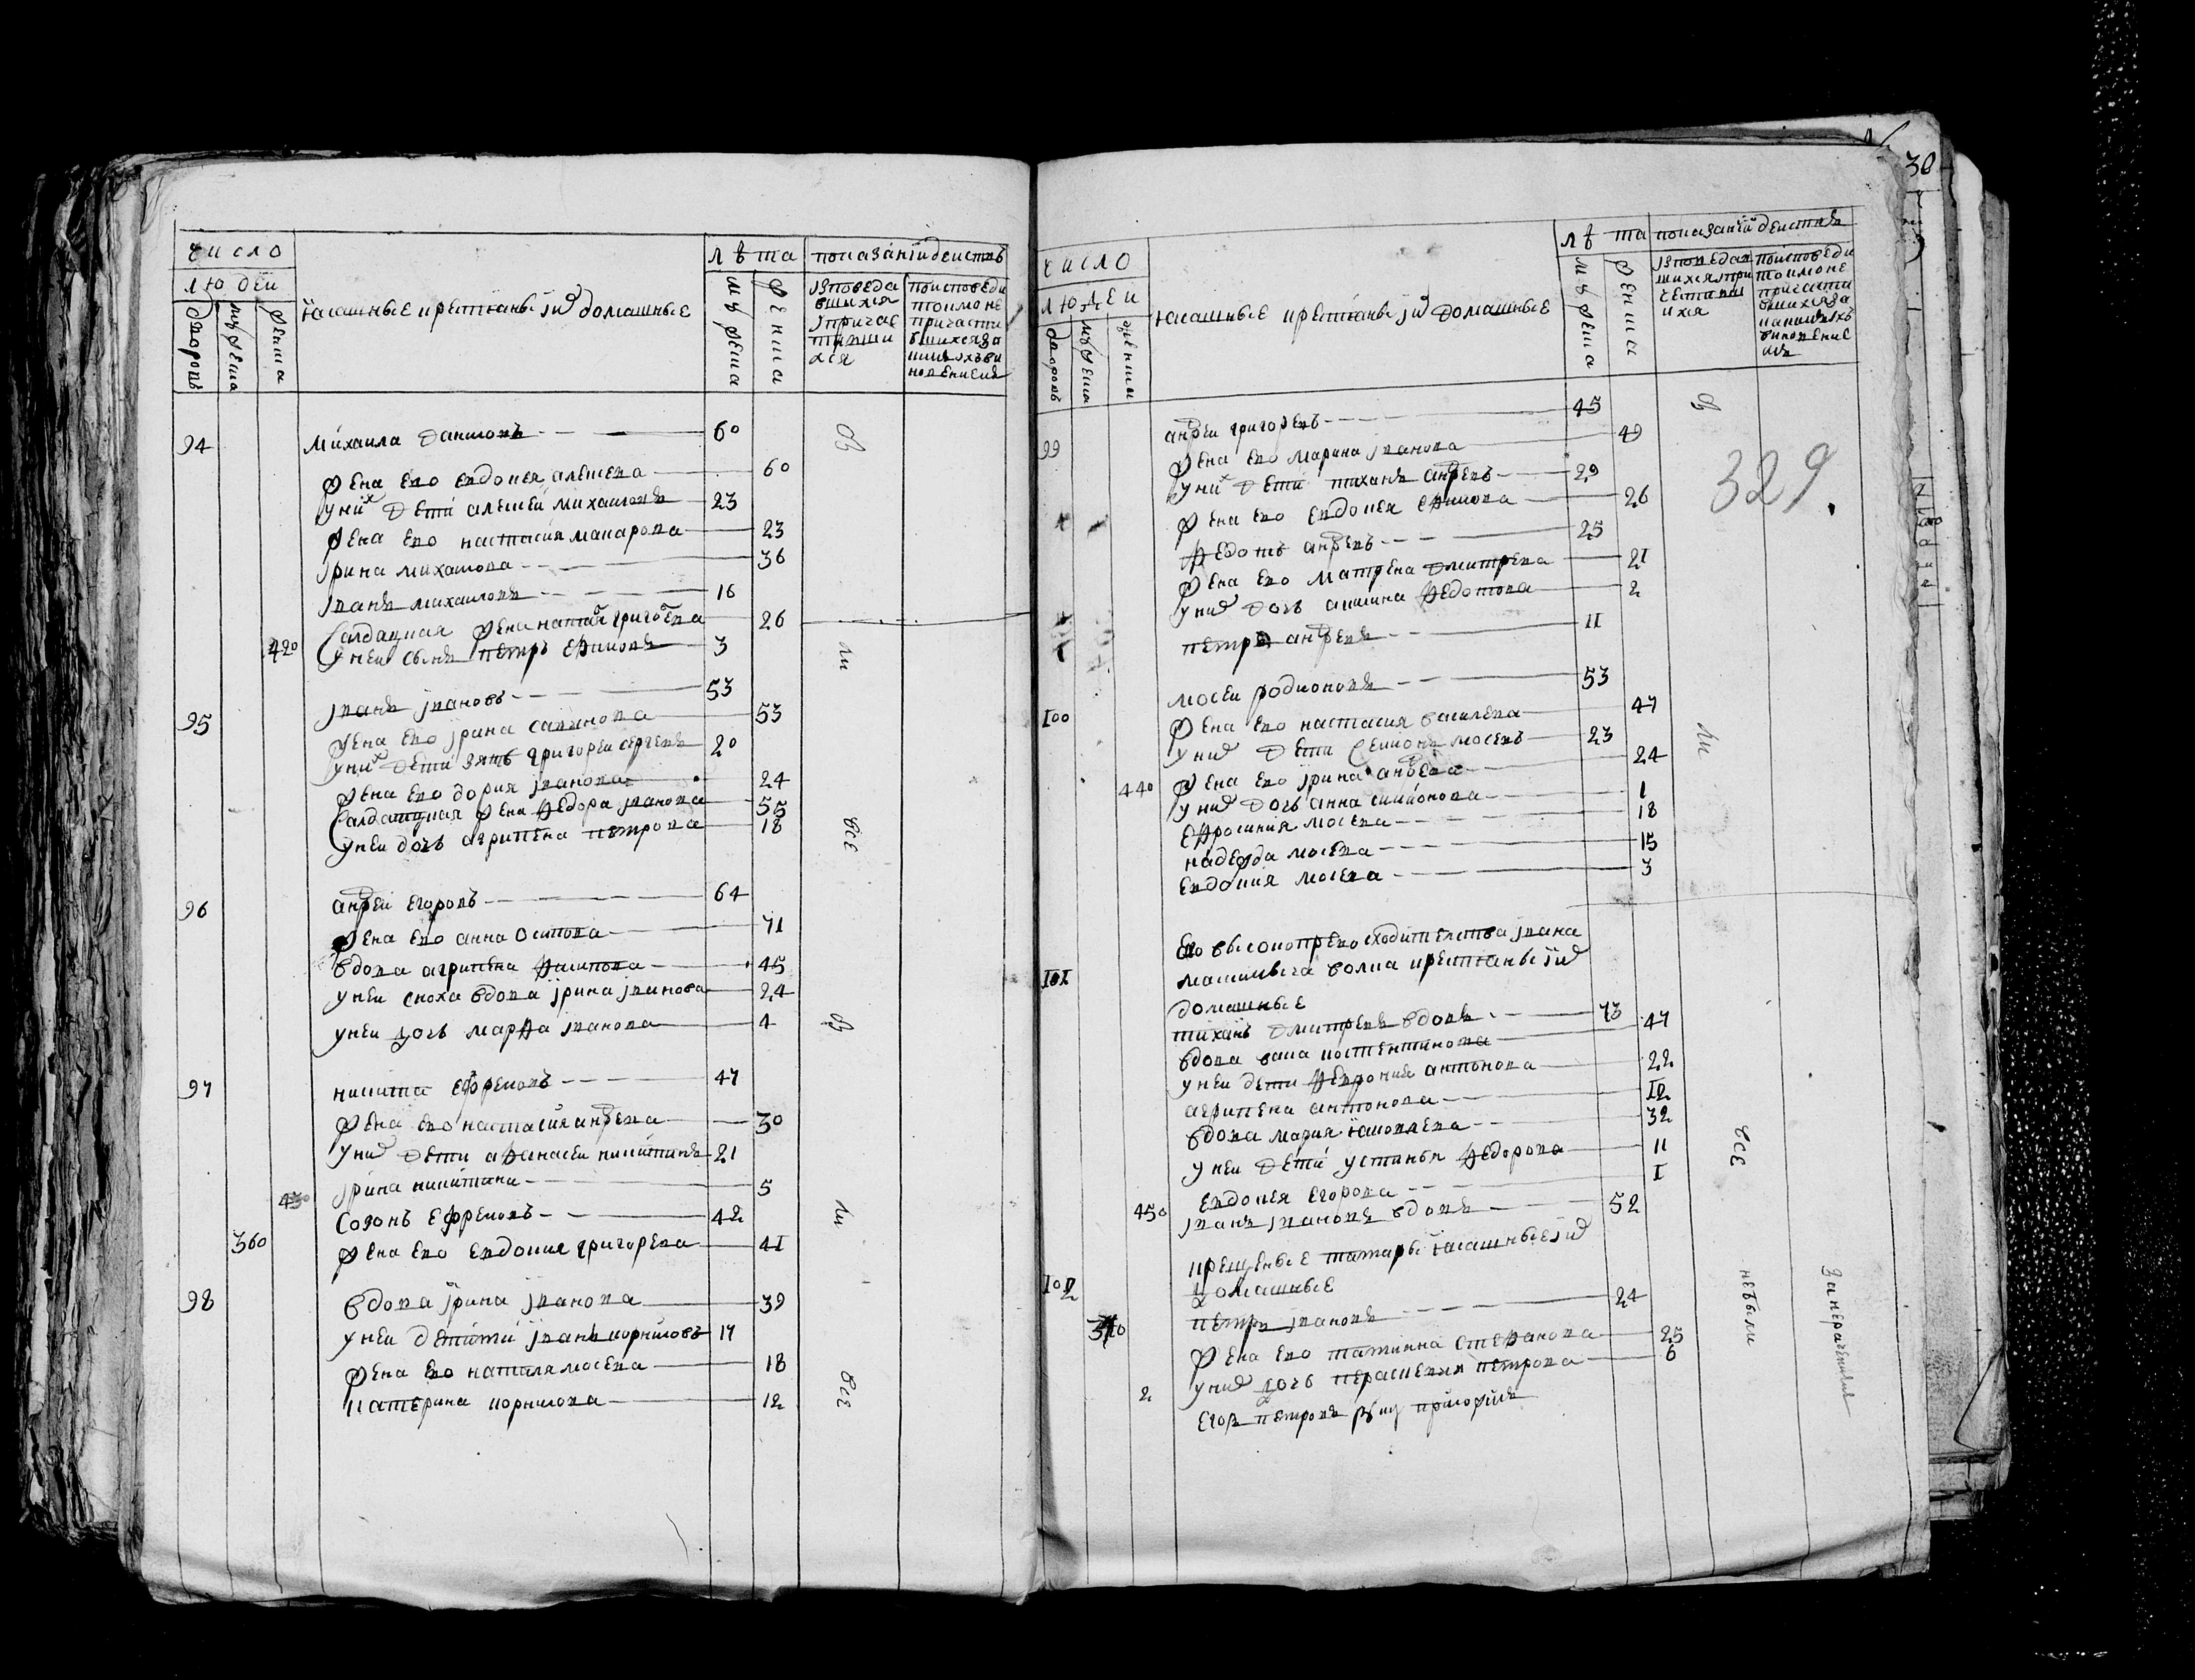 число
людей
дворовъ
мужеска
женска
ясашные крестьяне и их домашные
лѣта
мужеска
женска
показаніи действъ
исповеда
вшихся
и причас
тивши
хся
по исповеди
токмо не
причасти
вшихся за
каким их ви
нословием
94 михаила данилов 60
жена ево евдокея алексева 60
у них дети алексеи михаилов 23
жена ево настасия макарова 23
ирина михаилова 36
иван михаилов 16
салдацкая жена натая григорева 26
420 у неи сын петръ ефимов 3
95 иван ивановъ 53
жена ево ирина савинова 53
у них дети зять григореи сергеев 20
жена ево дария иванова 24
салдацкая жена федора иванова 55
у неи дочь агрипена петрова 18
96 андреи егоровъ 64
жена ево анна осипова 71
вдова агрипена филипова 45
у неи сноха вдова ирина иванова 24
у неи дочь марфа иванова 4
97 никита ефремовъ 47
жена ево настасия андрева 30
у них дети афанасеи никитин 21
430 ирина никитина 5
созонъ ефремовъ 42
360 жена ево евдокия григорева 41
98 вдова ирина иванова 39
у неи дети иван корниловъ 17
жена ево наталя мосева 18
катерина корнилова 12
в
ли
все
в
ли
все
30
число
людеи
дворовъ
мужеска
женски
ясашные крестьяне и их домашные
лѣта
мужеска
женска
показании действъ
исповедав
шихся и при
частивш
ихся
по исповеди
токмо не
причасти
вшихся за
каким их
виновение
мъ
329.
99 андреи григоревъ 45
жена ево марина иванова 49
у них дети тихан андревъ 29
жена ево евдокея ефимова 26
федотъ андревъ 25
жена ево матрена дмитрева 21
у них дочь акилина федотова 2
петръ андрев 11
100 мосеи родионов 53
жена ево настасия василева 47
у них дети семион мосевъ 23
жена ево ирина андрева 24
440 у них дочь анна симионова 1
ефросиния мосева 18
надежда мосева 15
евдокия мосева 3
101 ево высокопревосходителства ивана
максимыча волка крестьяне и их
домашные
тихан дмитрев вдов 73
вдова васа костентинова 47
у неи дети феврония антонова 22
агрипена антонова 12
вдова мария яковлева 32
у неи дети устинья федорова 11
евдокея егорова 1
450 иван иванов вдов 52
102 крещеные татары ясашные и их
домашные
петръ иванов 24
жена ево татиана стефанова 25
у них дочь парасковья петрова 6
2 егор петров
в
ли
все
небыли